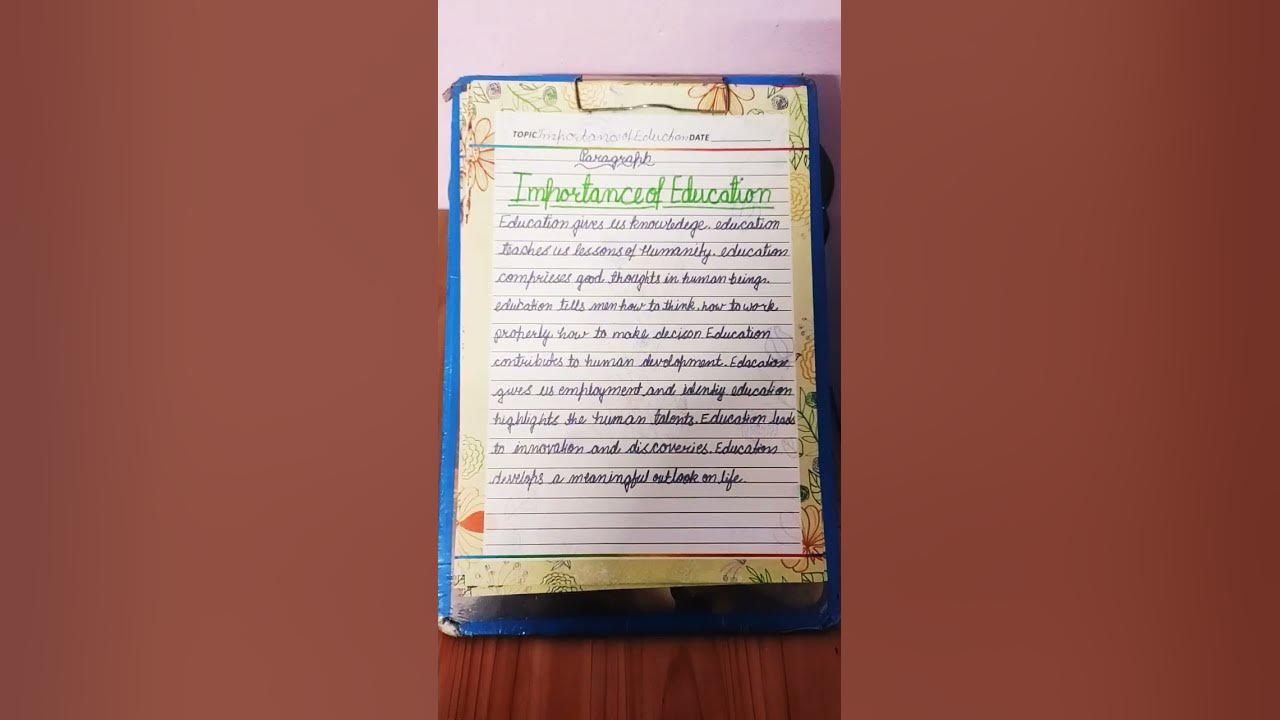 TOPIC Importance of Education DATE
Paragraph
Importance of Education
Education gives us knowledege. education
teaches us lessons of Humanity. education
comprieses good thoughts in human beings.
education tells men how to think, how to work
properly how to make decison Education
contributes to human devolopment. Education
gives us employment and identiy education
highlights the human talents. Education leads
to innovation and discoveries. Education
develops a meaningful outlook on life.